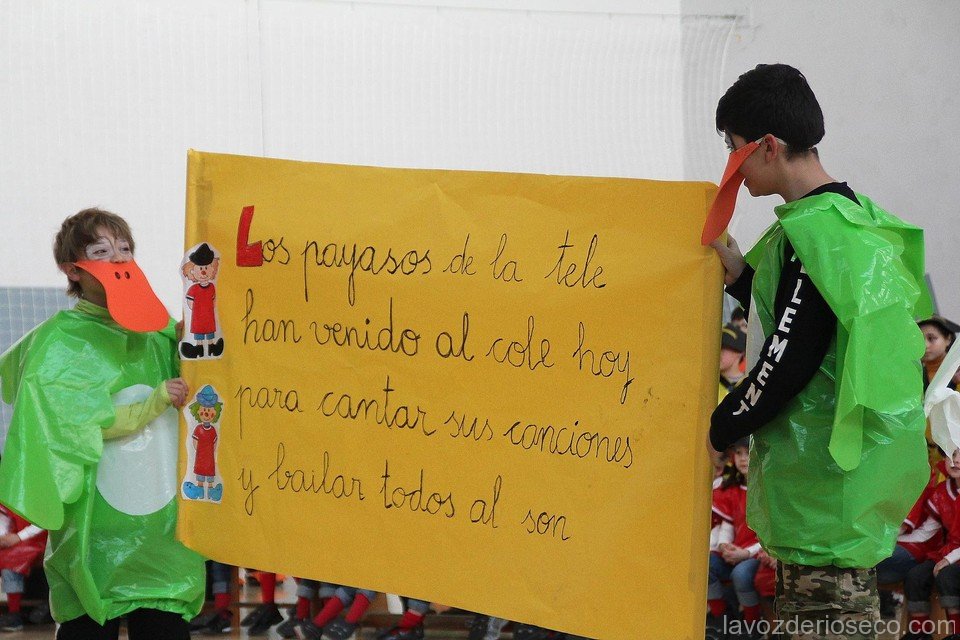 Los payasos de la tele
han venido al cole hoy
para cantar sus canciones
y bailar todos al son
ELEMENT
lavozderioseco.com